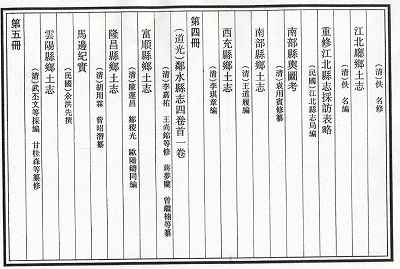 （清）佚 名編
江北廳鄉土志
（清）佚 名編
重修江北縣志採訪表略
（民國）江北縣志局編
南部縣輿圖考
（清）袁用賓修纂
南部縣鄉土志
（清）王道履編
西充縣鄉土志
（清）李琪章編
第四冊
（道光）鄰水縣志四卷首一卷
（清）李 祐 王尚錦等修 蔣夢蘭 曾繼楠等纂
富順縣鄉土志
（清）陳運昌 鄒稷光 歐陽鑄同編
隆昌縣鄉土志
（清）胡用霖 曾昭潛纂
馬邊紀實
（民國）余洪先撰
雲陽縣鄉土志
（清）武丕文等採編 甘桂森等纂修
第五冊